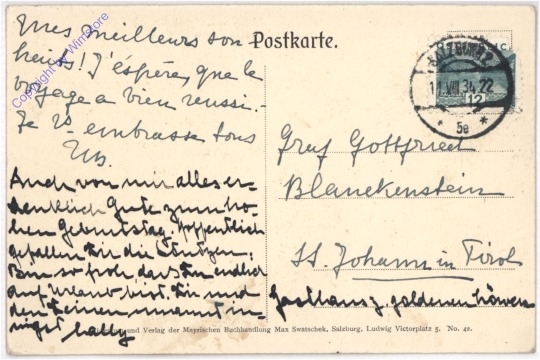 Mes meilleurs sou
haits! J'espère, que le
voyage a bien reussi.
Je vs embrasse tous
Auch von mir alles er-
denklich Gute zum ho-
hen Geburtstag. Hoffentlich
gefallen Dir die Stutzen.
Bin so froh, dass Du endlich
auf Urlaub bist. Dir und
den Deinen umarmt in-
nigst
Postkarte.
SALZBURG 2
11.VIII.34.22
* 5e *
12
Graf Gottfried
Blanckenstein
St. Johann in Tirol
Gasthaus z. goldenen Löwen
und Verlag der Mayrischen Buchhandlung Max Swatschek, Salzburg, Ludwig Victorplatz 5. No. 42.
Copyright by Winstore